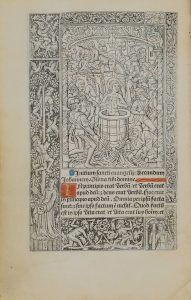 Initium sancti evangelii. Secundum
Johannem. Gloria tibi domine
In principio erat verbũ et verbũ erat
apud deũ: et deus erat verbũ. Hoc erat
in principio apud deũ. Omnia per ipsũ facta
sunt: et sine ipso factũ ẽ nichil. Quod factũ
est in ipso vita erat et vita erat lux